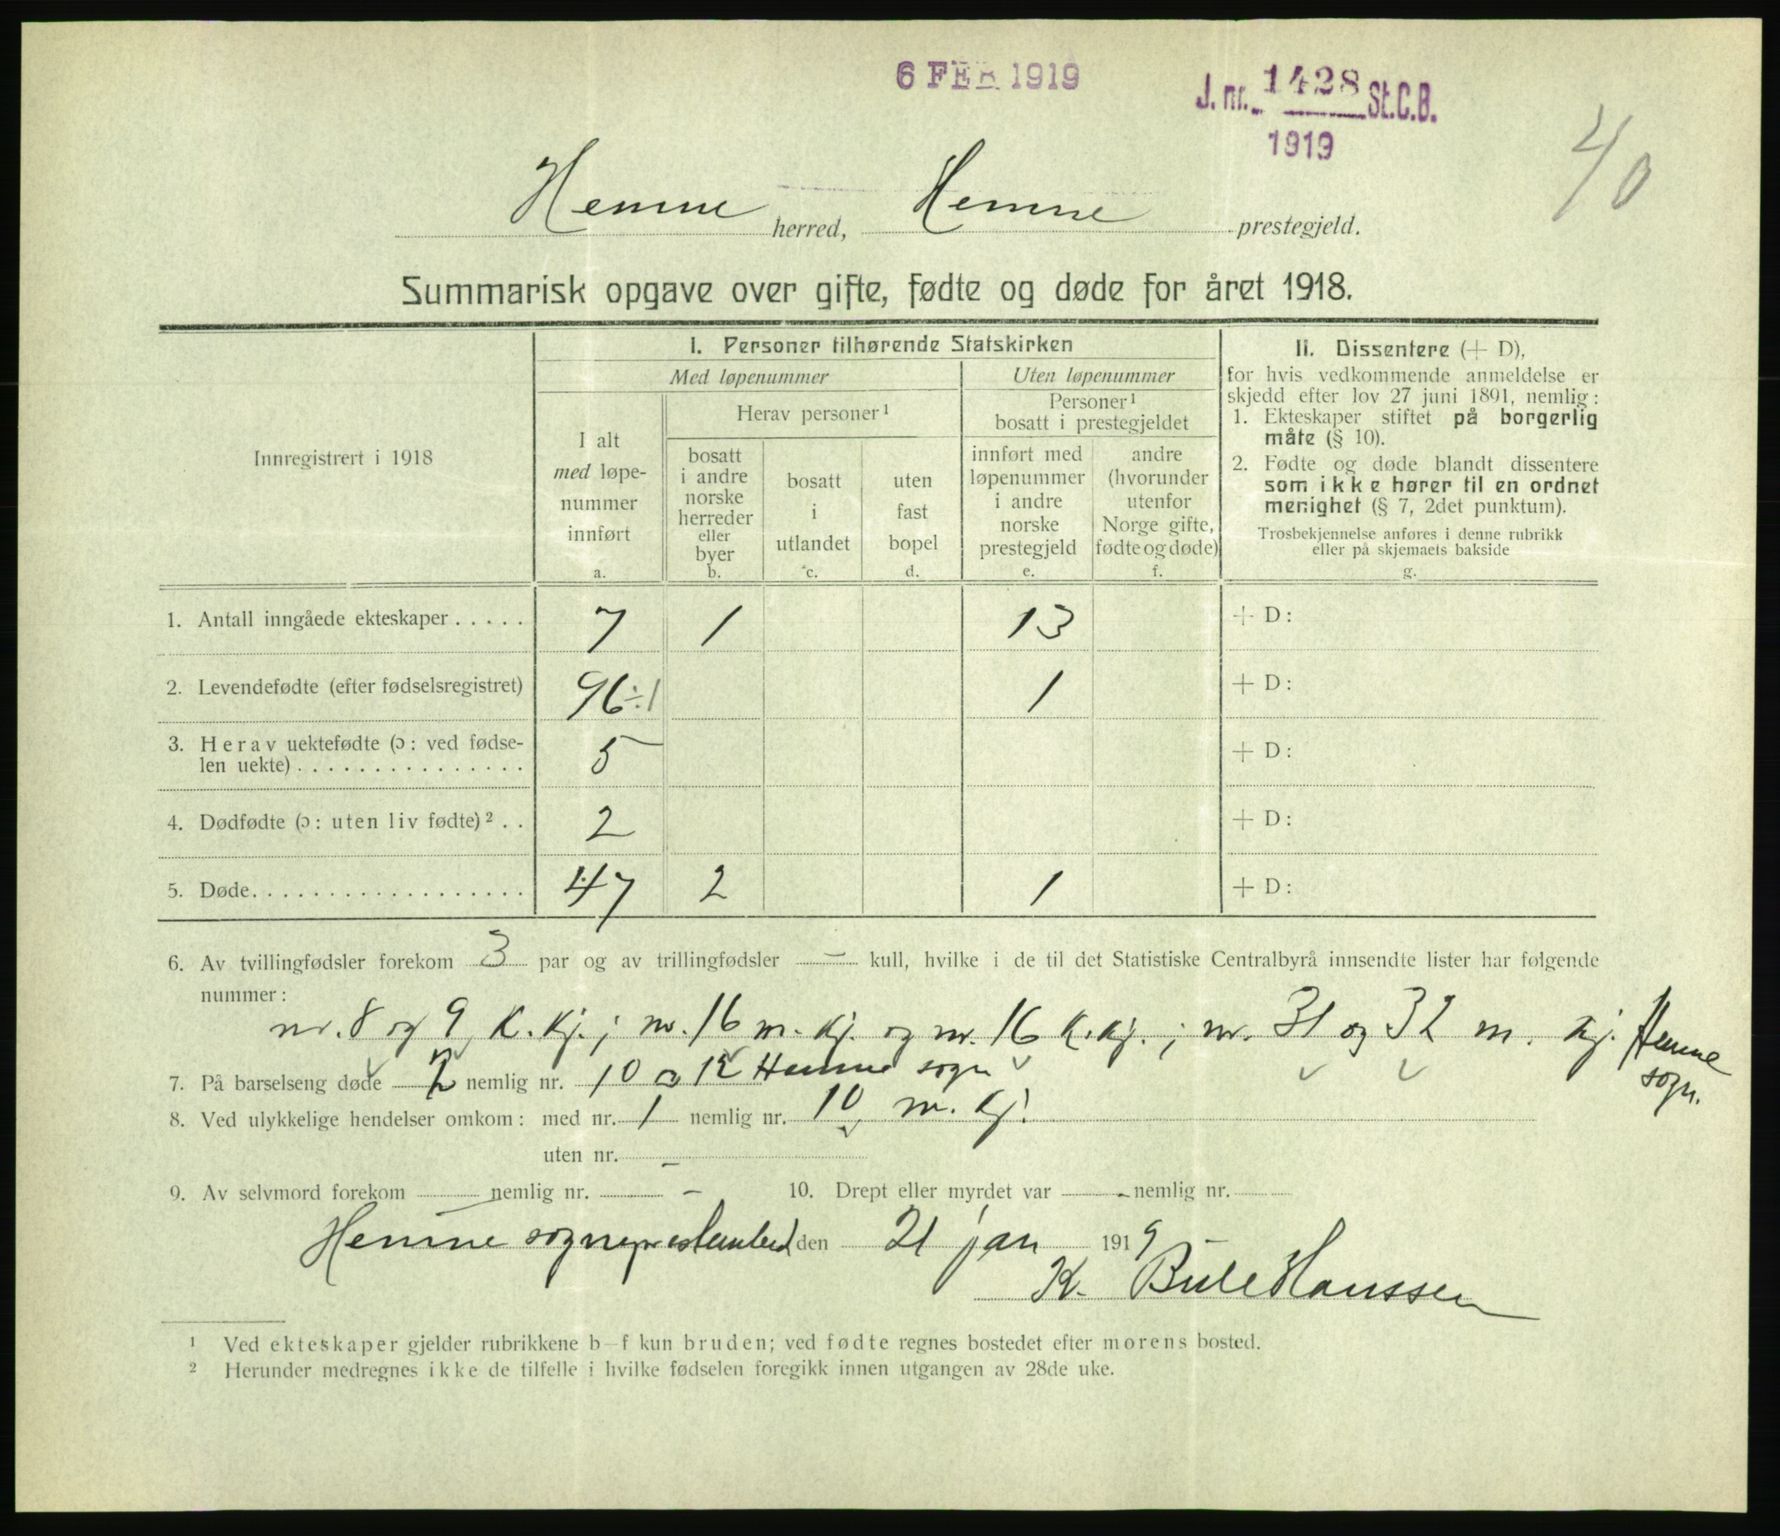 6 FEB 1919
J. nr. 1428 St.C.B.
1919
40
Hemne herred, Hemne prestegjeld.
Summarisk opgave over gifte, fødte og døde for året 1918.
Innregistrert i 1918
I. Personer tilhørende Statskirken
Med løpenummer
Uten løpenummer
I alt
med løpe-
nummer
innført
a.
Herav personer¹
bosatt
i andre
norske
herreder
eller
byer
b.
bosatt
i
utlandet
c.
uten
fast
bopel
d.
Personer¹
bosatt i prestegjeldet
innført med
løpenummer
i andre
norske
prestegjeld
e.
andre
(hvorunder
utenfor
Norge gifte,
fødte og døde)
f.
II. Dissentere (+ D),
for hvis vedkommende anmeldelse er
skjedd efter lov 27 juni 1891, nemlig:
1. Ekteskaper stiftet på borgerlig
måte (§ 10).
2. Fødte og døde blandt dissentere
som ikke hører til en ordnet
menighet (§ 7, 2det punktum).
Trosbekjennelse anføres i denne rubrikk
eller på skjemaets bakside
g.
1. Antall inngåede ekteskaper . . . . . 7 1 13 + D:
2. Levendefødte (efter fødselsregistret) 96÷1 1 + D:
3. Herav uektefødte (ɔ: ved fødse-
len uekte) . . . . . . . . . . . . . . . 5 + D:
4. Dødfødte (ɔ: uten liv fødte)² . . 2 + D:
5. Døde. . . . . . . . . . . . . . . . . . 47 2 1 + D:
6. Av tvillingfødsler forekom 3 par og av trillingfødsler – kull, hvilke i de til det Statistiske Centralbyrå innsendte lister har følgende
nummer:
nr. 8 og 9 K. Kj.; nr. 16 m. Kj. og nr. 16 K. Kj.; nr. 31 og 32 m. Kj. Hemne
sogn.
7. På barselseng døde 2 nemlig nr. 10 o 12 Hemne sogn
8. Ved ulykkelige hendelser omkom: med nr. 1 nemlig nr. 10 m. Kj.
uten nr. –
9. Av selvmord forekom – nemlig nr. – 10. Drept eller myrdet var – nemlig nr.
Hemne sogneprestembed den 21 jan 1919
K. Bule Hanssen
¹ Ved ekteskaper gjelder rubrikkene b–f kun bruden; ved fødte regnes bostedet efter morens bosted.
² Herunder medregnes ikke de tilfelle i hvilke fødselen foregikk innen utgangen av 28de uke.